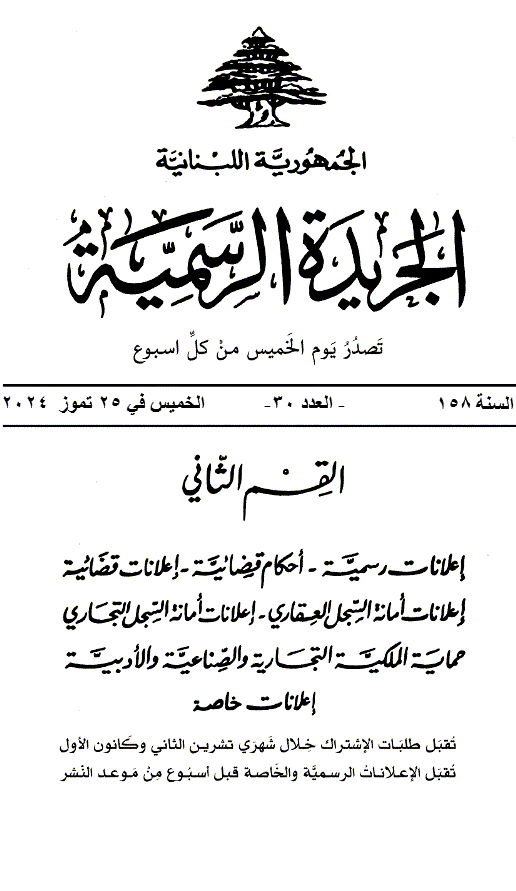 الجُمهُوريَّة اللبْنانيَّة
الجَريدَة الرَّسَمِيَّة
تَصدُرُ يَوم الخَميس منْ كلِّ اسبوع
السنة ١٥٨ - العدد ٣٠- الخميس في ٢٥ تموز ٢٠٢٤
القِسْم الثّاني
إعلانات رسميَّة - أحكام قضائيَّة - إعلانات قضائية
إعلانات أمانة السِّجل العقاري - إعلانات أمانة السِّجل التجاري
حماية الملكيَّة التجارية والصِّناعيَّة والأدبيَّة
إعلانات خاصة
تُقبَل طلبَات الإشتراك خِلال شَهرَي تشرين الثاني وكَانون الأول
تُقبَل الإعلاناتُ الرسميَّة والخَاصة قبل أسبُوع مِنْ مَوعد النَشر